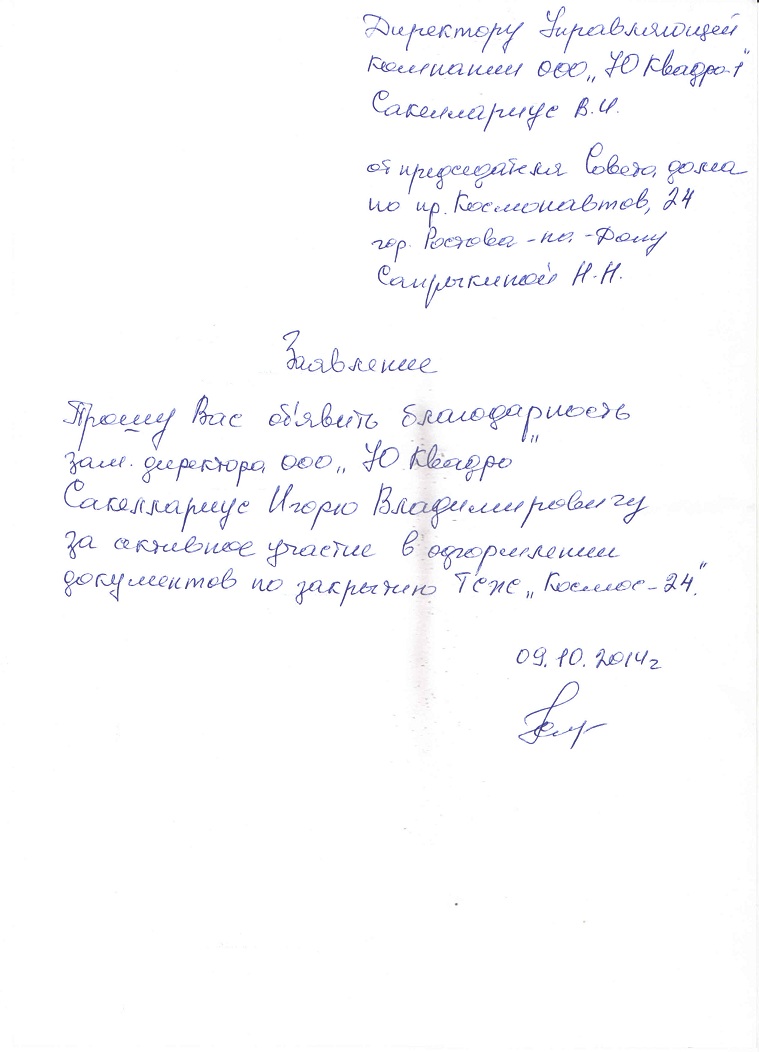 Директору Управляющей
компании ООО „Ю Квадро-1"
Сакеллариус В.И.
от председателя Совета дома
по пр. Космонавтов, 24
гор. Ростова-на-Дону
Сапрыкиной Н.Н.
Заявление
Прошу Вас объявить благодарность
зам. директора ООО „Ю Квадро"
Сакеллариус Игорю Владимировичу
за активное участие в оформлении
документов по закрытию ТСЖ „Космос-24".
09.10.2014г